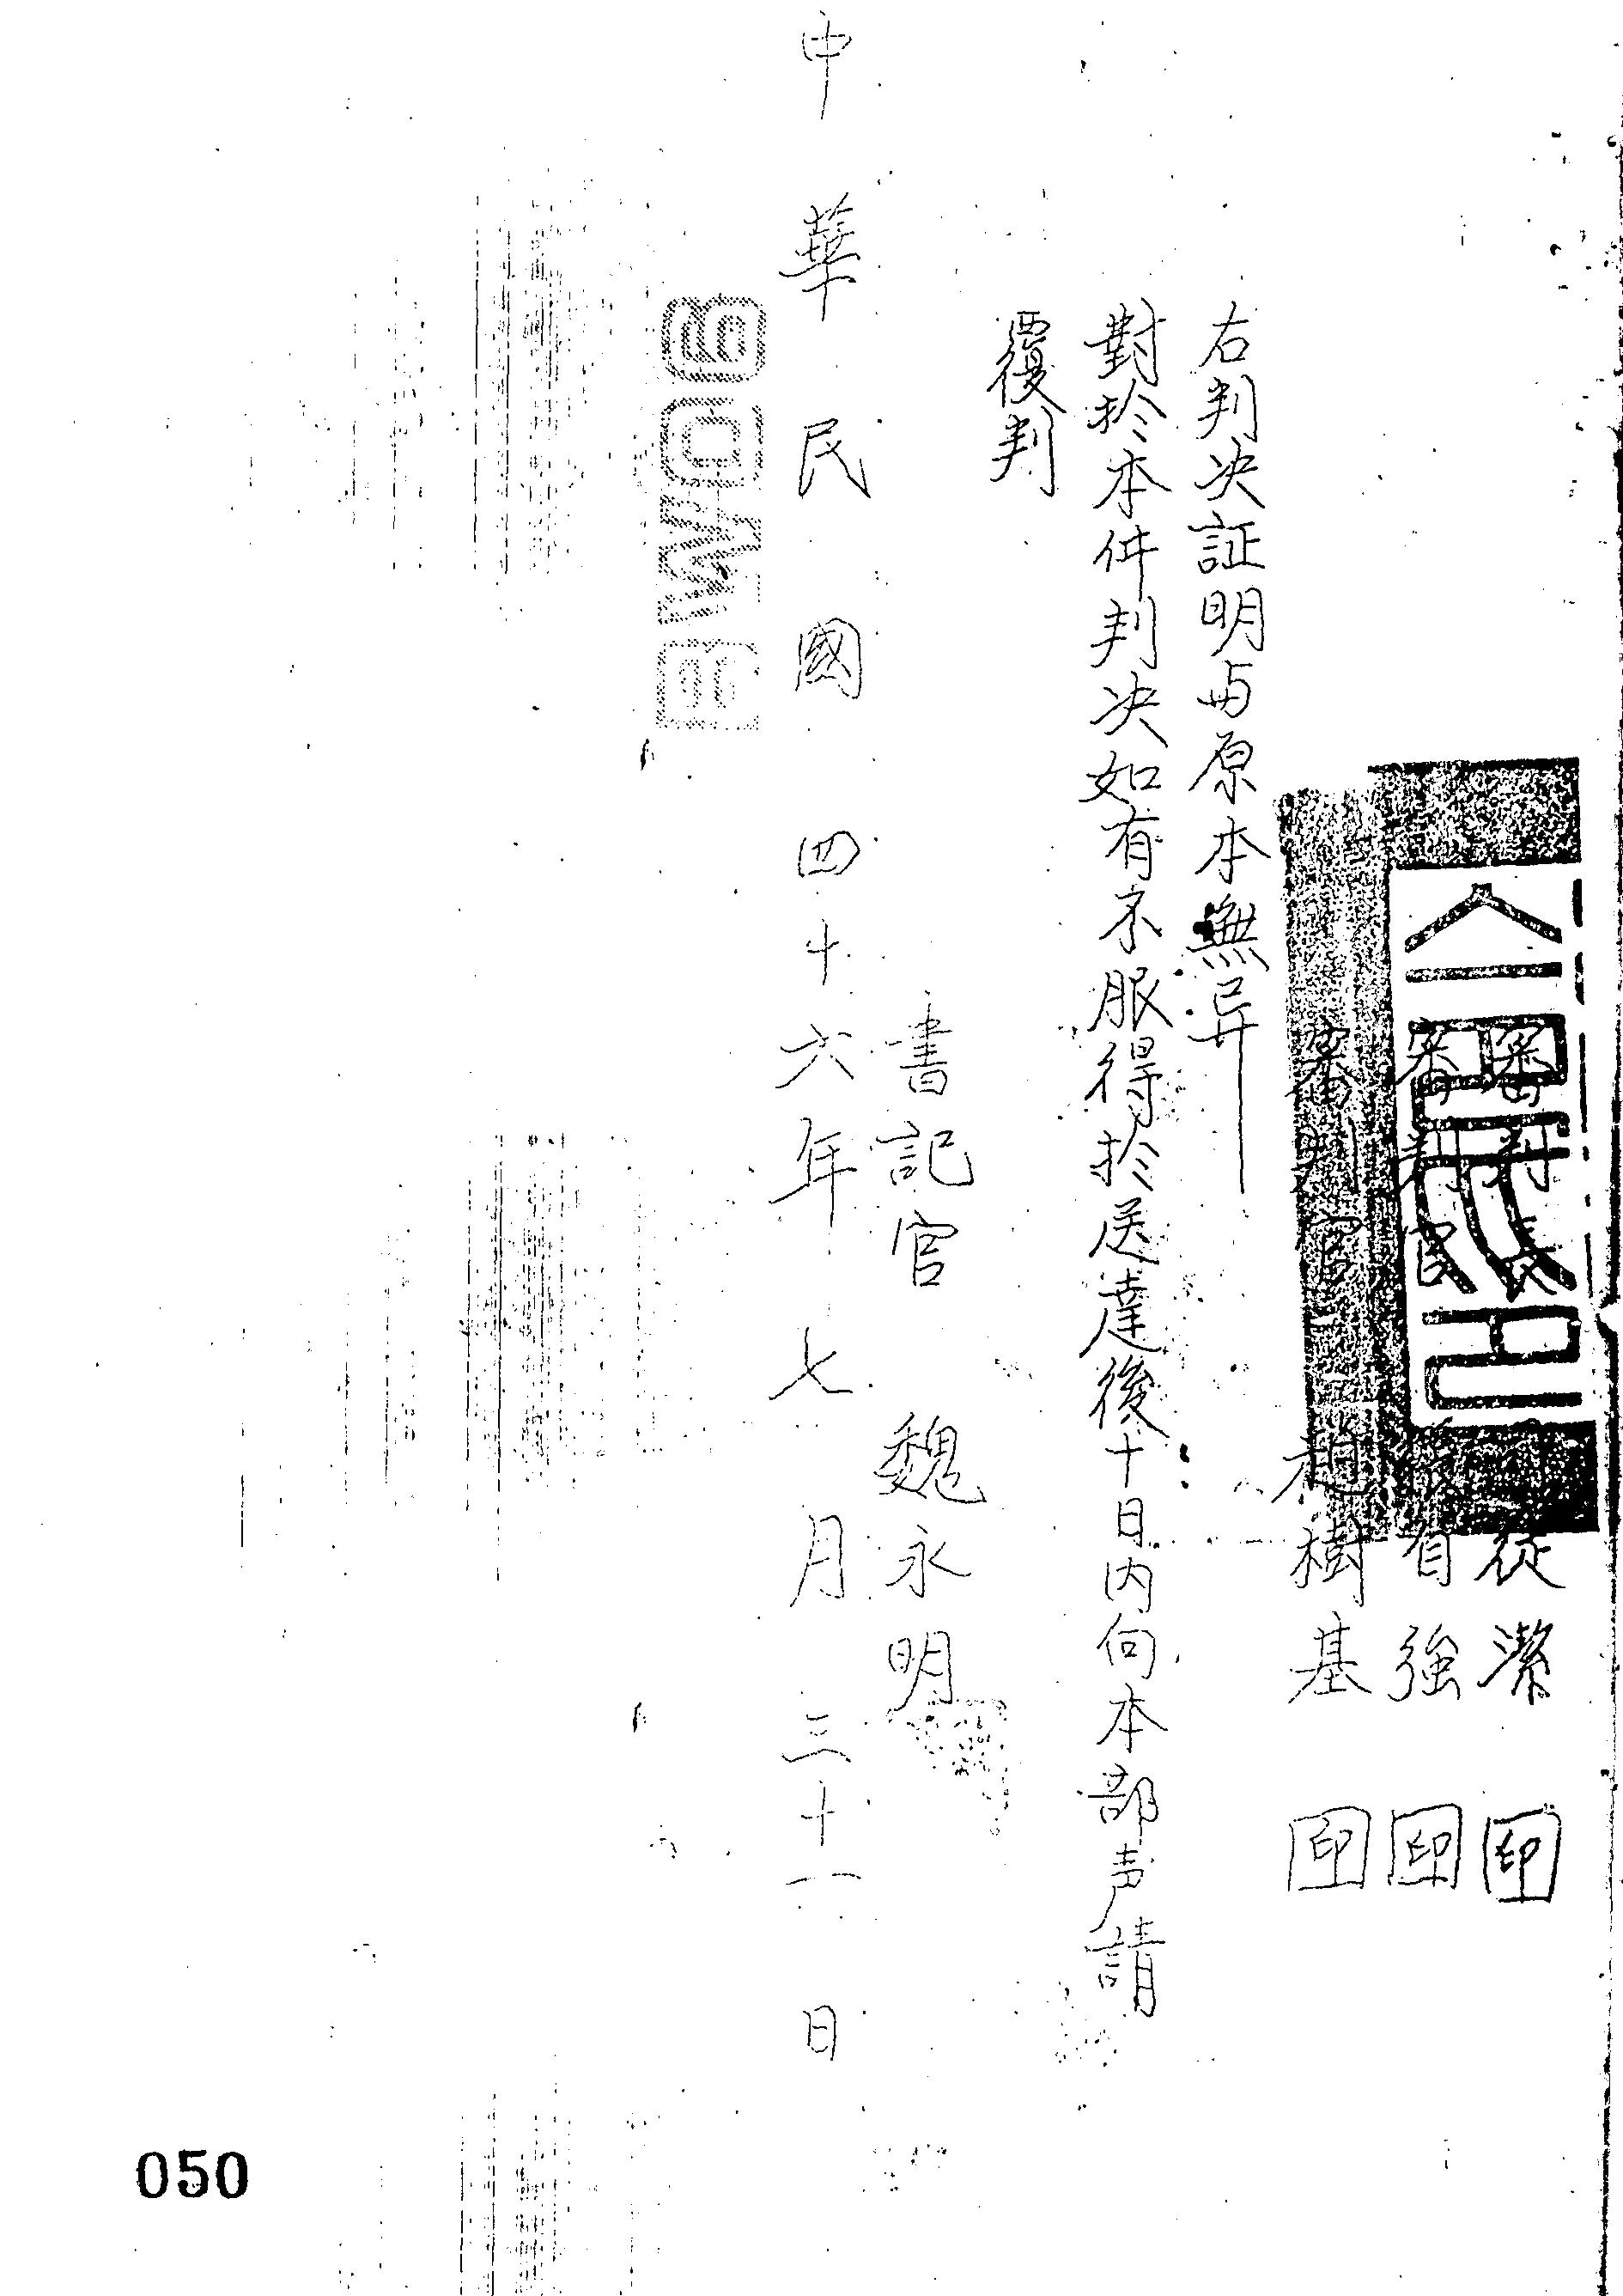 審判長 從潔 印
審判官 有強 印
審判官 趙樹基 印
右判决証明与原本無异
對於本件判决如有不服得於送達後十日内向本部声請
覆判
書記官 魏永明
中華民國四十六年七月三十一日
050